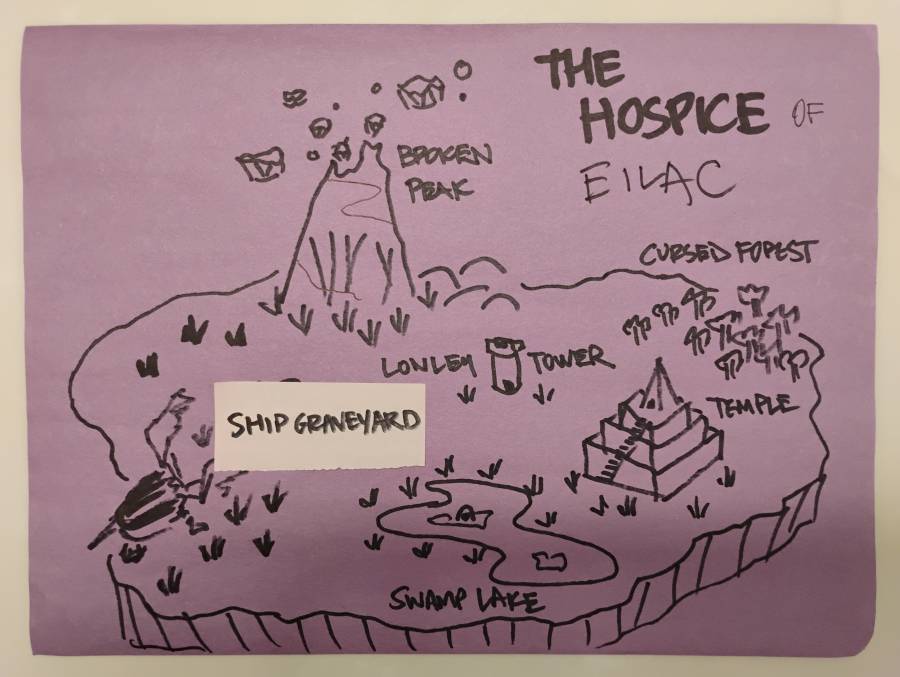 THE
HOSPICE OF
EILAC
BROKEN
PEAK
CURSED FOREST
LONLEY TOWER
TEMPLE
SHIP GRAVEYARD
SWAMP LAKE